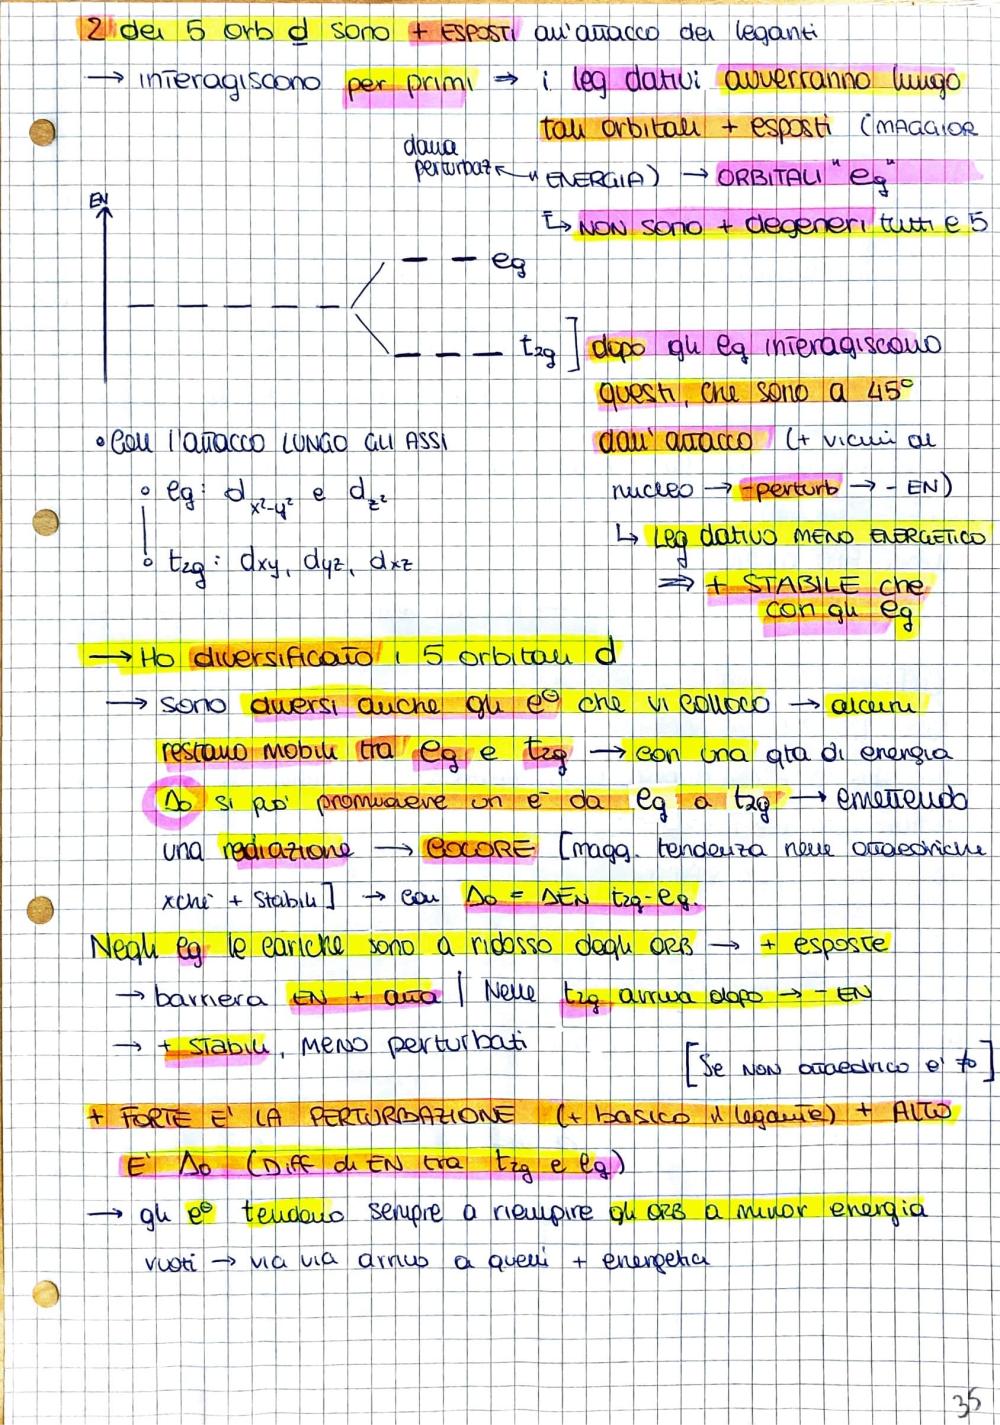 2 dei 5 orb d sono + ESPOSTI all'attacco dei leganti
→ interagiscono per primi ⇒ i leg dativi avverranno lungo
tali orbitali + esposti (MAGGIOR
dalla perturbaz ← ENERGIA) → ORBITALI "eg"
↳ NON sono + degeneri tutti e 5
EN
eg
t2g ] dopo gli eg interagiscono
questi, che sono a 45°
• Con l'attacco LUNGO GLI ASSI
dall'attacco (+ vicini al
eg: dx²-y² e dz²
nucleo → -perturb → - EN)
↳ Leg dativo MENO ENERGETICO
t2g: dxy, dyz, dxz
⇒ + STABILE che
con gli eg
→ Ho diversificato i 5 orbitali d
→ sono diversi anche gli e⊖ che vi colloco → alcuni
restano mobili tra eg e t2g → con una qta di energia
Δo si puo' promuovere un e⁻ da eg a t2g → emettendo
una radiazione → COLORE [magg. tendenza nelle ottaedriche
xchè + stabili] → con Δo = ΔEN t2g-eg.
Negli eg le cariche sono a ridosso degli ORB → + esposte
→ barriera EN + alta | Nelle t2g arriva dopo → - EN
→ + stabili, MENO perturbati
[Se NON ottaedrico e' ≠o]
+ FORTE E' LA PERTURBAZIONE (+ basico il legante) + ALTO
E' Δo (Diff di EN tra t2g e eg)
→ gli e⊖ tendono sempre a riempire gli ORB a minor energia
vuoti → via via arrivo a quelli + energetici
35